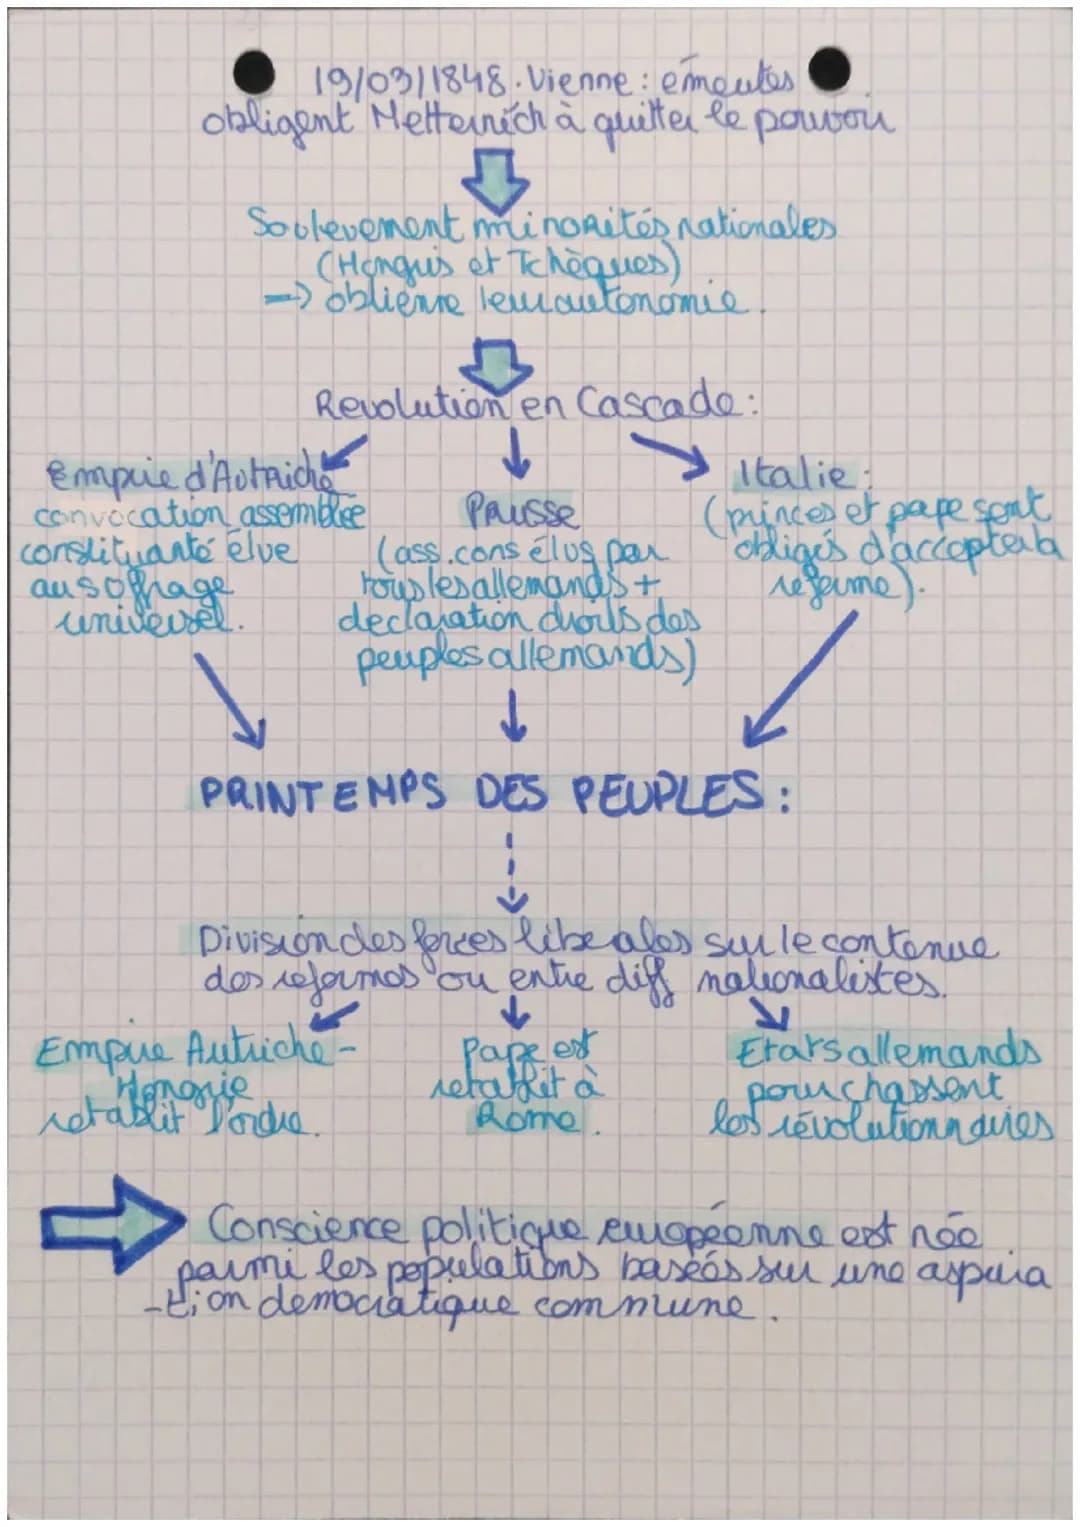 19/03/1848. Vienne : émeutes
obligent Metternich à quitter le pouvoir
Soulevement minorités nationales
(Hongris et Tchèques)
=> obtienne leur autonomie.
Revolution en Cascade :
Empire d'Autriche
convocation assemblée
constituante élue
au soffrage
universel.
Prusse
(ass. cons élus par
tous les allemands +
declaration droits des
peuples allemands)
Italie :
(princes et pape sont
obligés d'accepter la
reforme).
PRINTEMPS DES PEUPLES :
Division des forces libe ales sur le contenue
des reformes ou entre diff nationalistes.
Empire Autriche -
Hongrie
retablit l'ordre.
Pape est
retablit à
Rome.
Etats allemands
pourchassent
les révolutionnaires
Conscience politique européenne est née
parmi les populations baséés sur une aspira
-tion democratique commune.